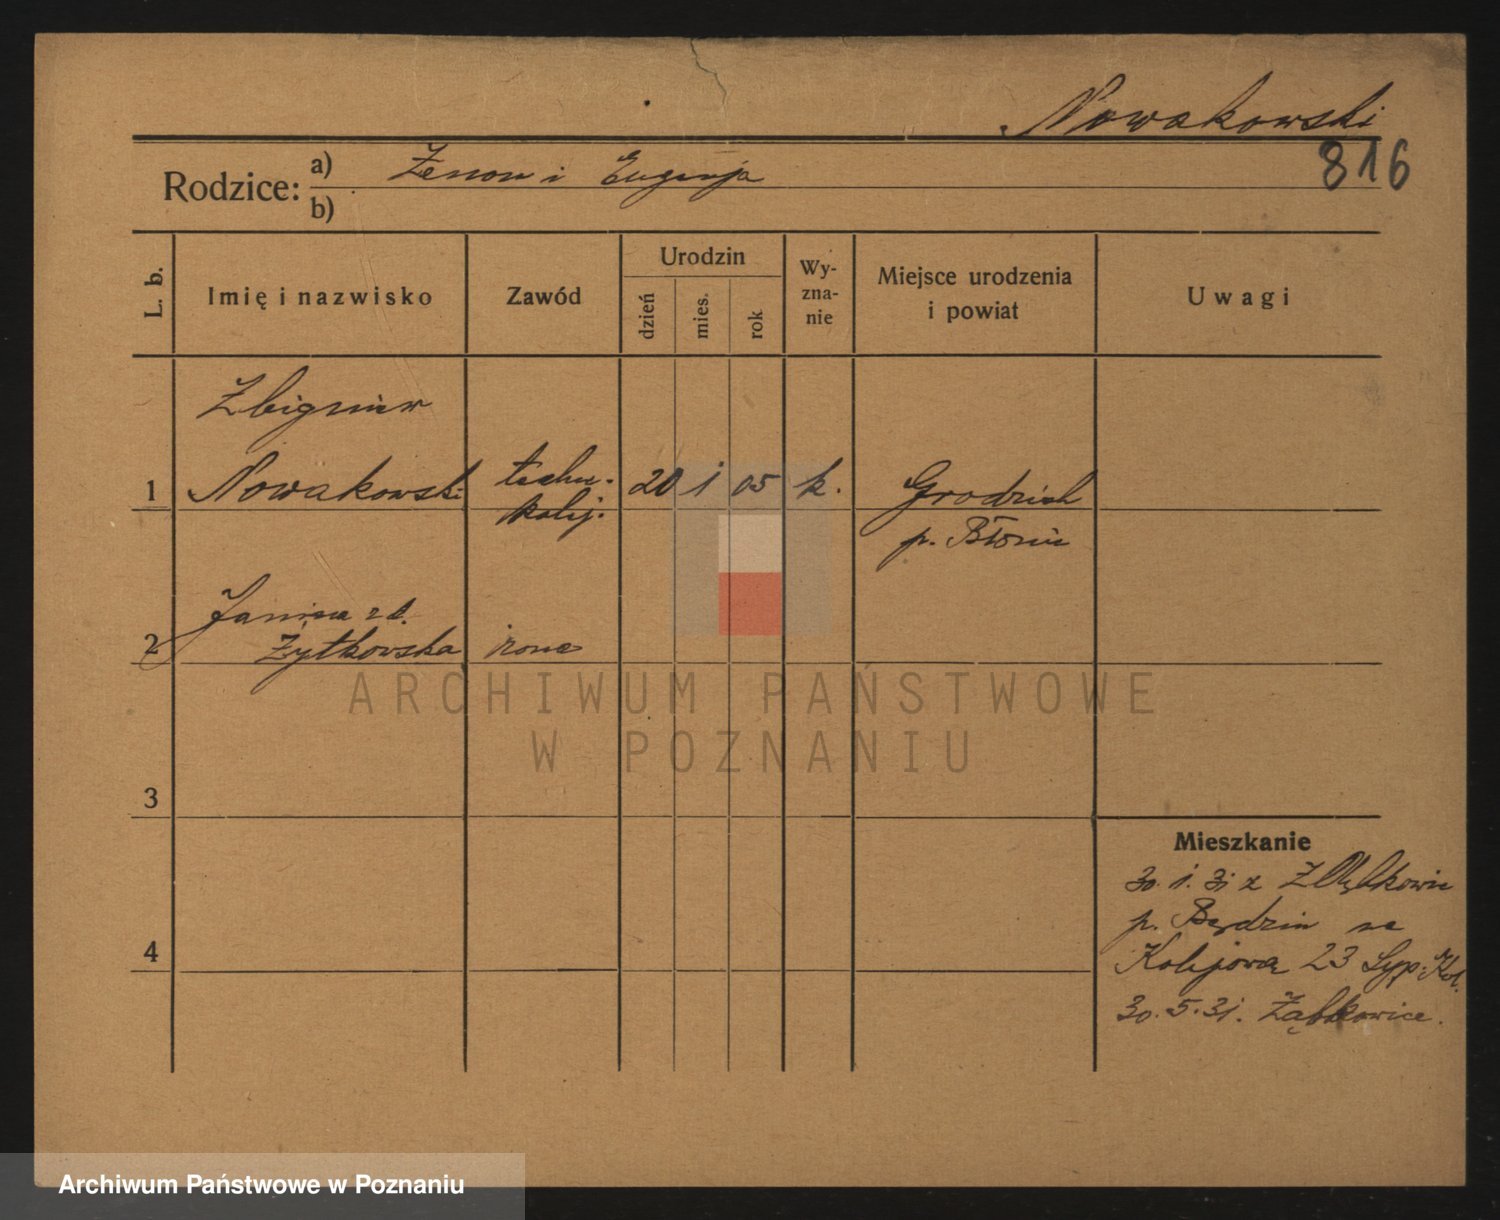 Nowakowski
816
Rodzice: a) Zenon i Eugenja
b)
L. b.
Imię i nazwisko
Zawód
Urodzin
dzień
mies.
rok
Wy-
zna-
nie
Miejsce urodzenia
i powiat
Uwagi
Zbigniew
1 Nowakowski techn. 20 1 05 k. Grodzisk
kolej. p. Błonie
Janina z d.
2 Żytkowska żona
3
4
Mieszkanie
30.1.31 z Ząbkowic
p. Będzin na
Kolejowa 23 Syp. Kol.
30.5.31. Ząbkowice.
ARCHIWUM PAŃSTWOWE
W POZNANIU
Archiwum Państwowe w Poznaniu